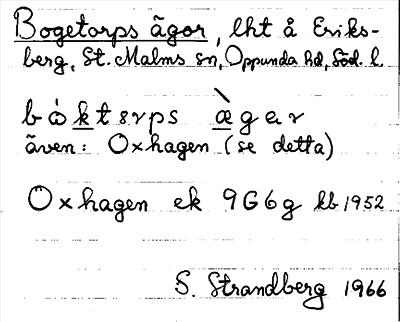 Bogetorps ägor, lht å Eriks-
berg, St. Malms sn, Oppunda hd, Söd. l.
även: Oxhagen (se detta)
Oxhagen ek 9G6g kb 1952
S. Strandberg 1966